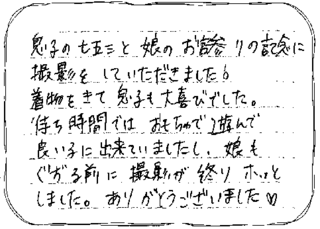 息子の七五三と娘のお宮参りの記念に
撮影をしていただきました。
着物をきて息子も大喜びでした。
待ち時間では おもちゃで遊んで
良い子に出来ていましたし、娘も
ぐずる前に撮影が終り ホッと
しました。ありがとうございました♡